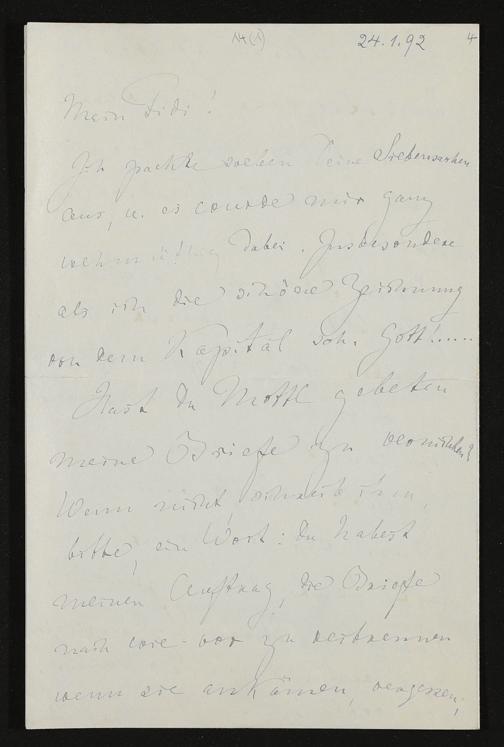 14(1) 24.1.92 4
Mein Didi!
Ich packte soeben Deine Siebensachen
aus, u. es wurde mir ganz
wehmüthig dabei. Insbesondere
als ich die schöne Zeichnung
von dem Kapital sah. Gott!.....
Hast Du Mottl gebeten
meine Briefe zu vernichten?
Wenn nicht, schreib ihm,
bitte, ein Wort: Du habest
meinen Auftrag, die Briefe
nach wie vor zu verbrennen
wenn sie ankämen, vergessen;